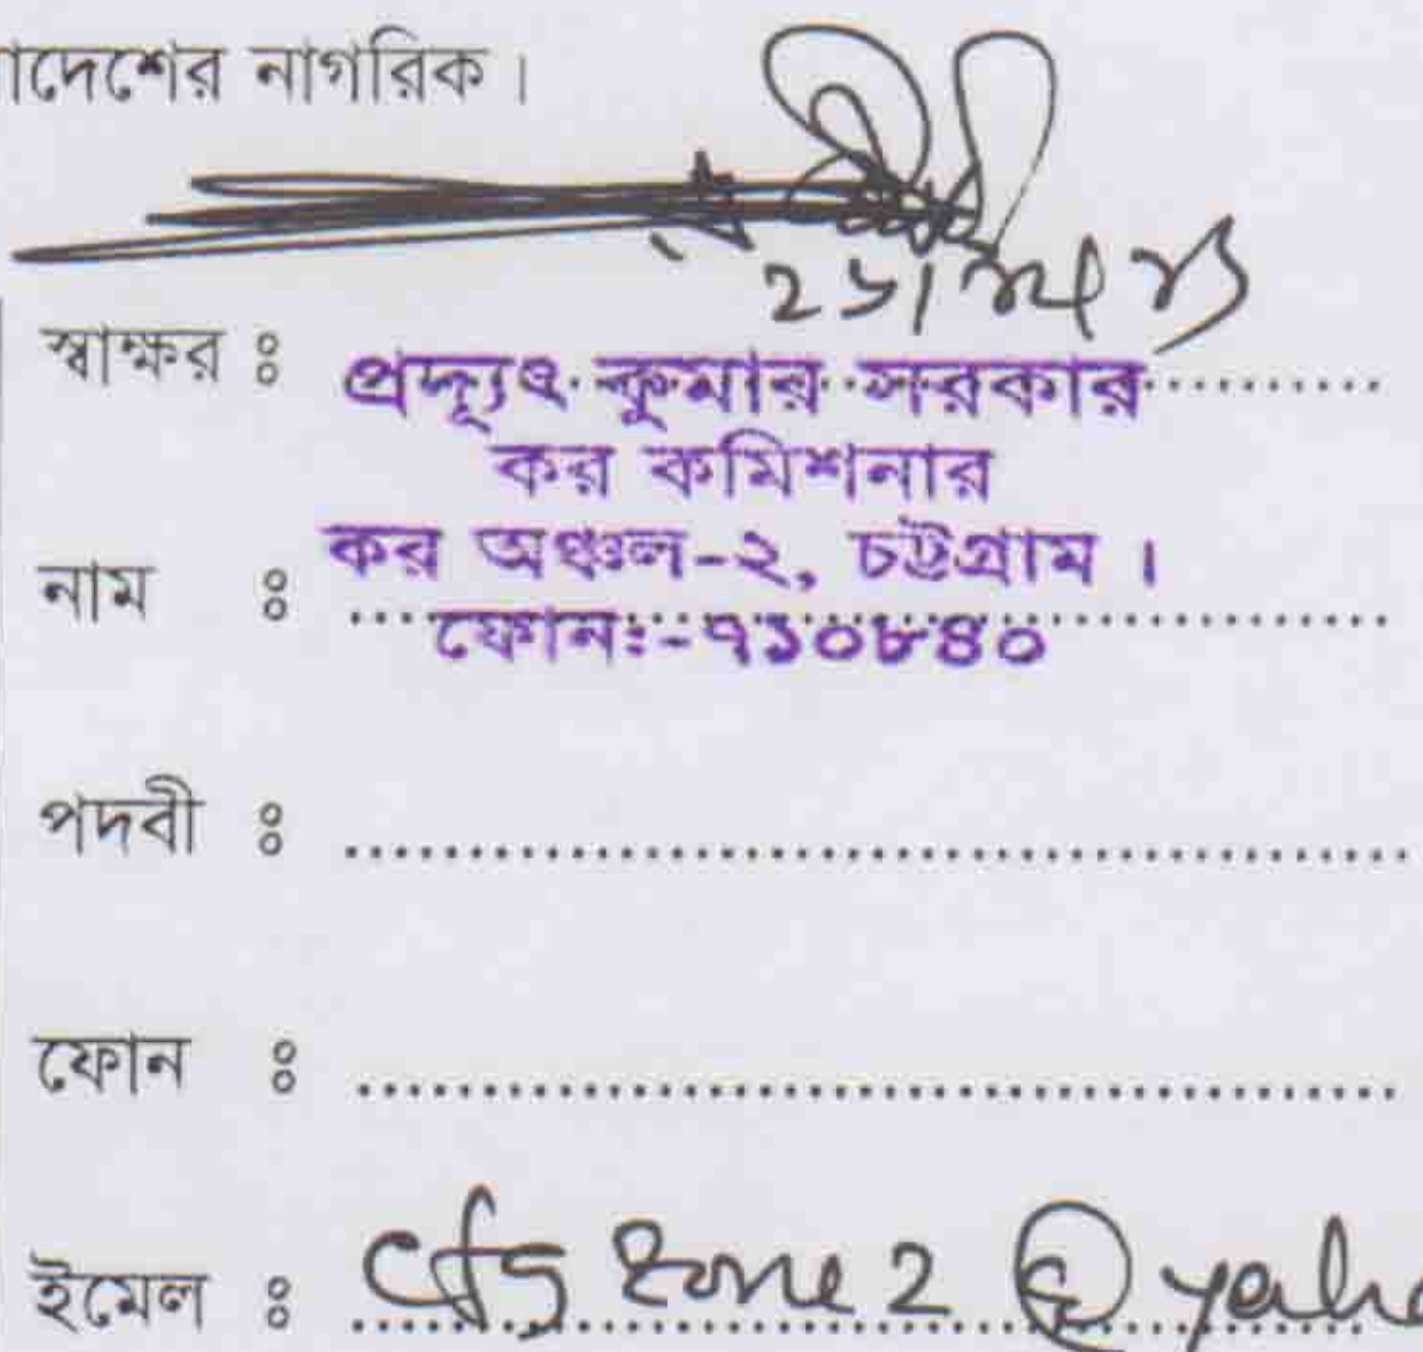 াদেশের নাগরিক।
স্বাক্ষর ঃ
প্রদ্যূৎ কুমার সরকার
কর কমিশনার
নাম ঃ
কর অঞ্চল-২, চট্টগ্রাম।
ফোনঃ-৭১০৮৪০
পদবী ঃ
ফোন ঃ
ইমেল ঃ zone 2 @ yaho